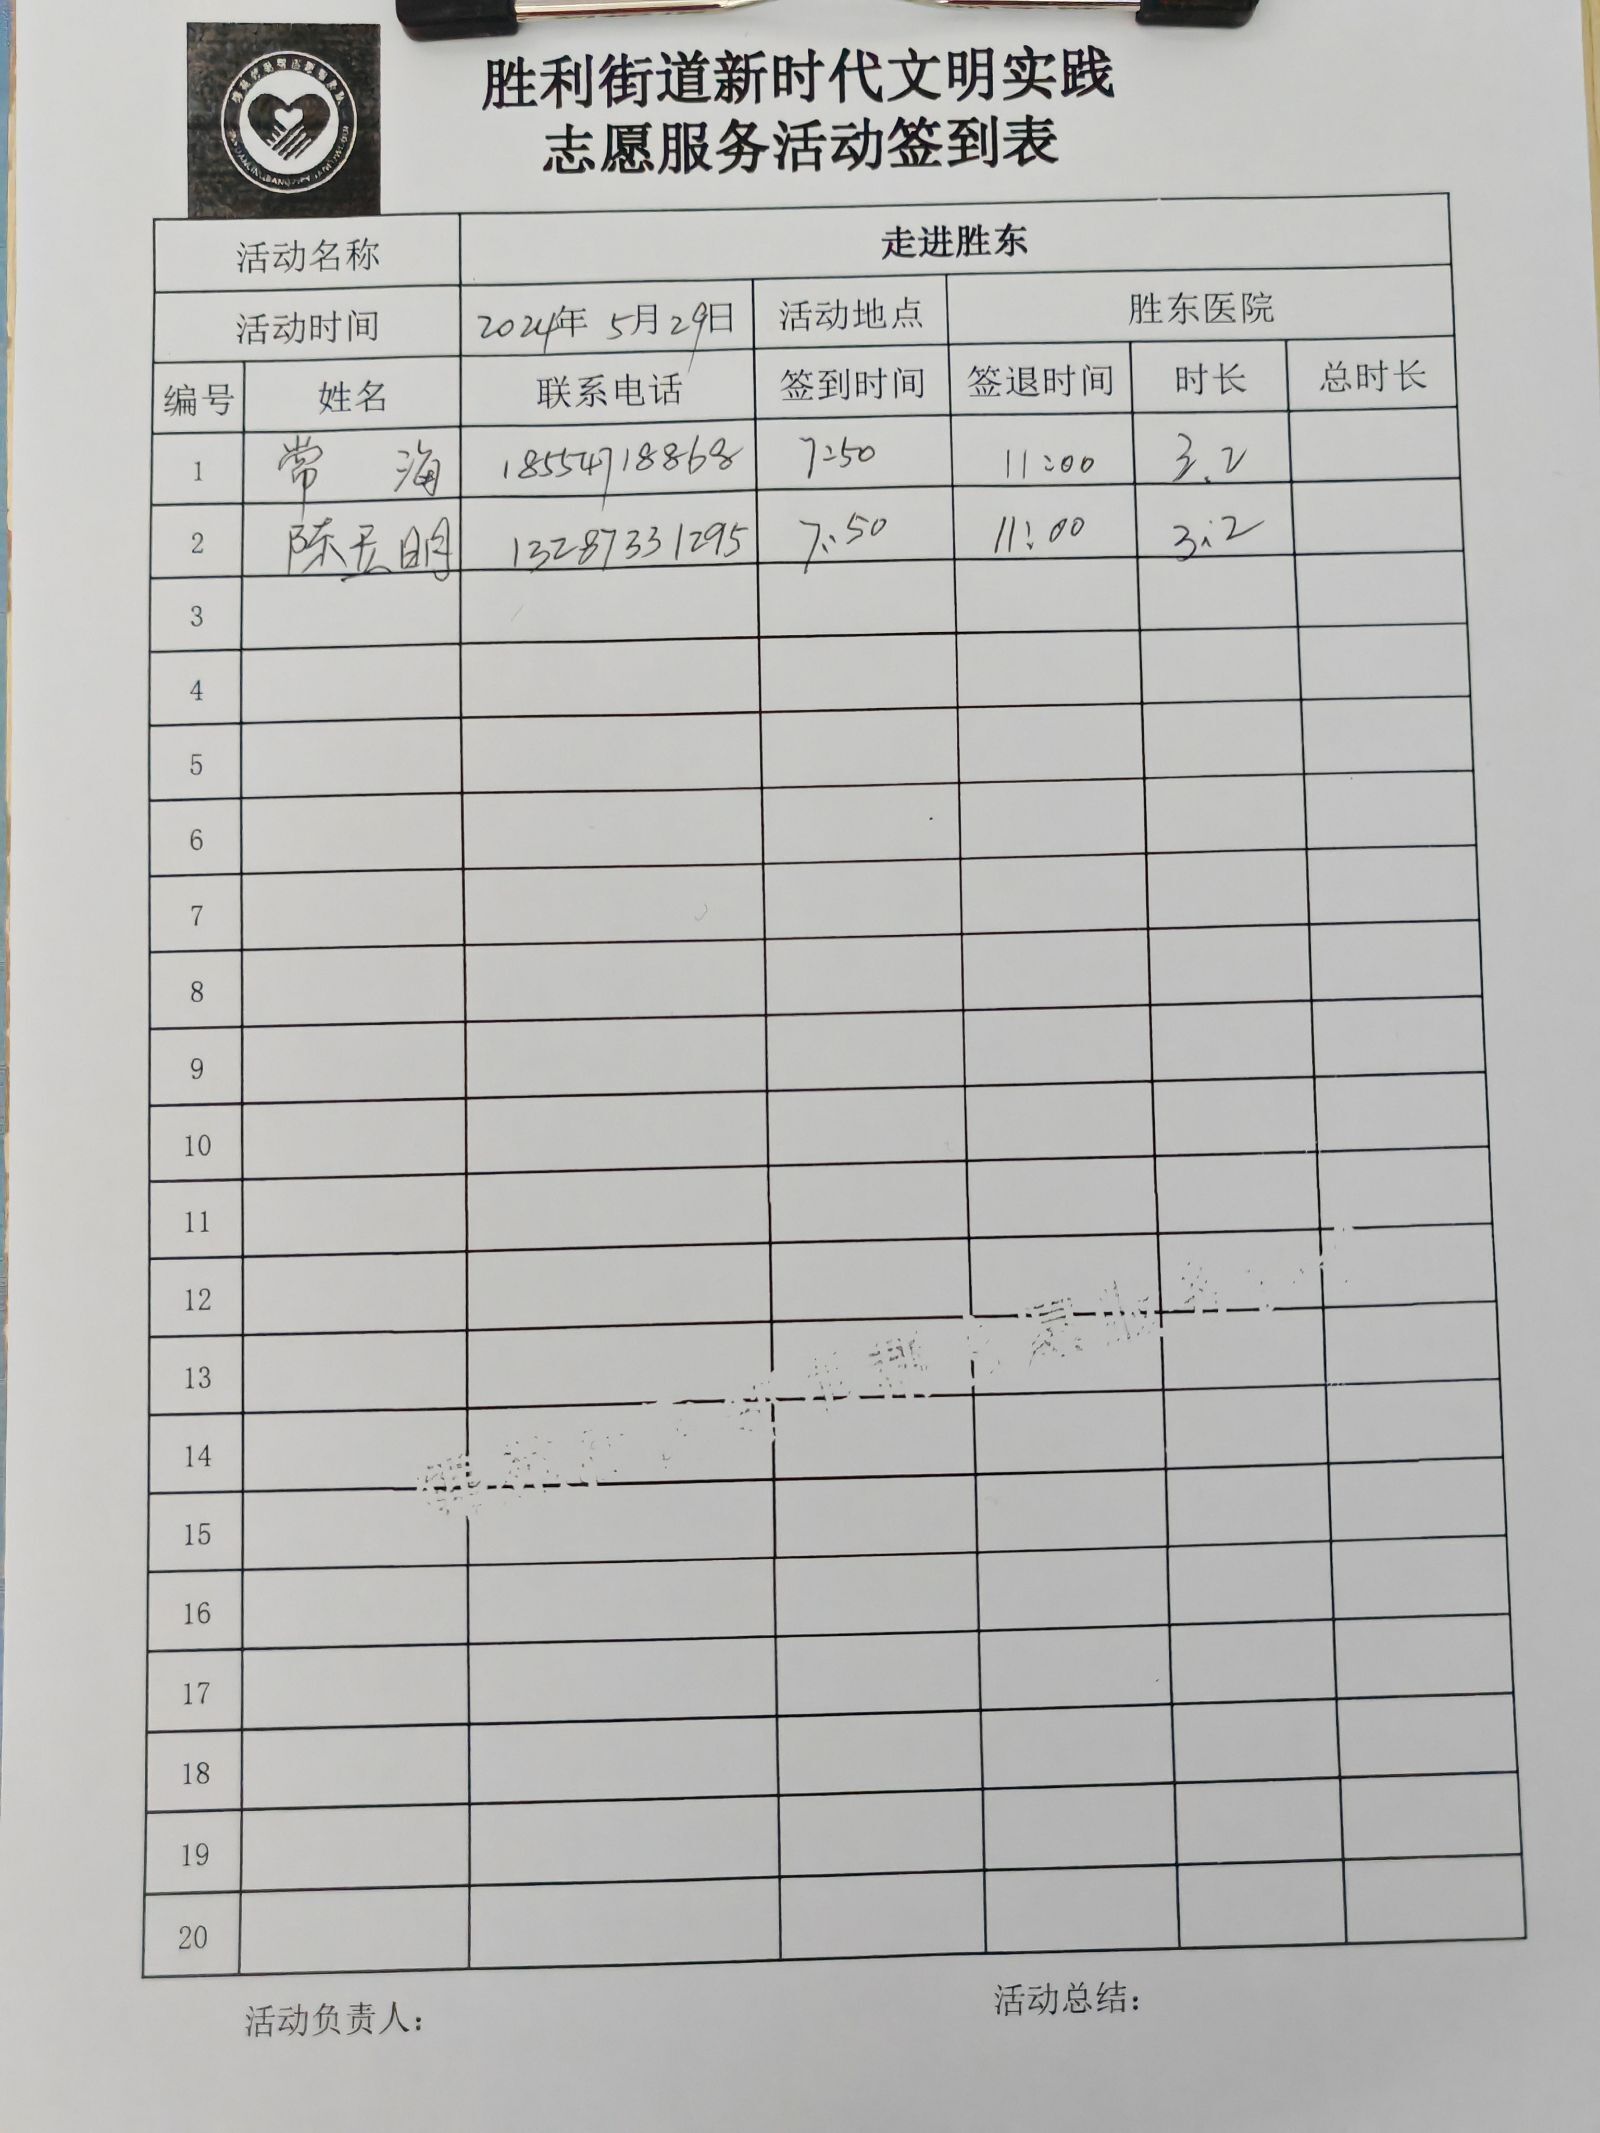 胜利街道新时代文明实践
志愿服务活动签到表
活动名称 走进胜东
活动时间 2024年 5月29日 活动地点 胜东医院
编号 姓名 联系电话 签到时间 签退时间 时长 总时长
1 常 海 18554718868 7:50 11:00 3.2
2 陈天明 13287331295 7:50 11:00 3:2
3
4
5
6
7
8
9
10
11
12
13
14
15
16
17
18
19
20
活动负责人:
活动总结: